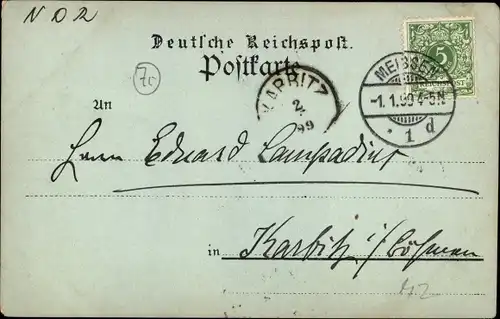 N D 2
Deutsche Reichspost.
Postkarte
70
5
REICHSPOST
MEISSEN
-1.1.99 4-5N
* 1 d
KARBITZ
2/1
99
An
Herrn Eduard Lampadius
in Karbitz i/Böhmen
42